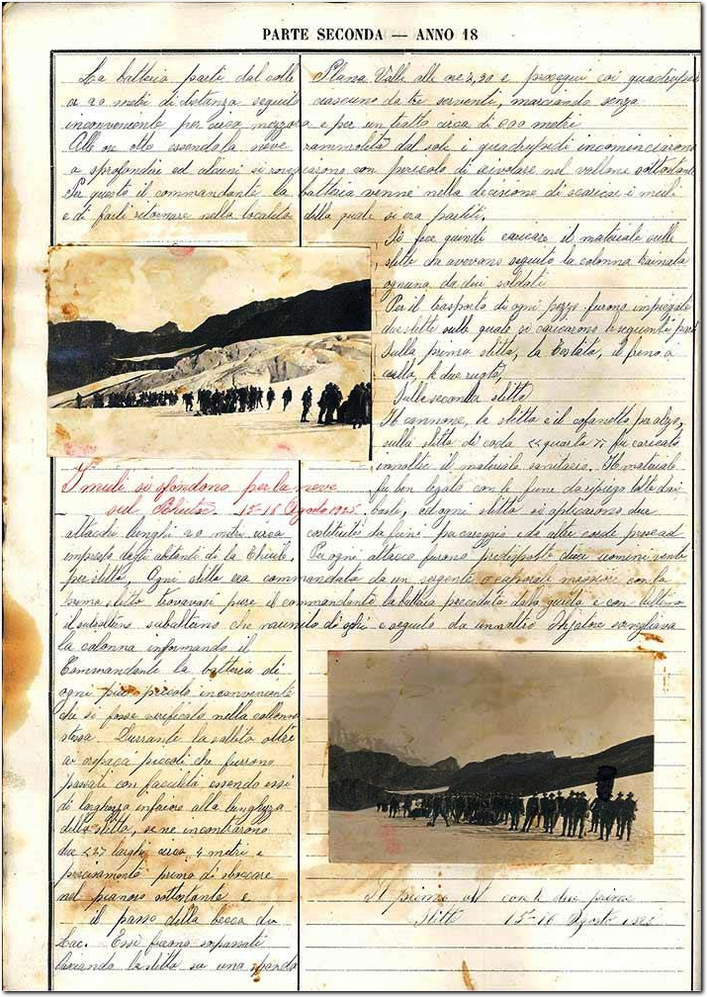 PARTE SECONDA — ANNO 18
La batteria partì dal colle Plana Valle alle ore 2,30 e proseguì coi quadrupedi
a 20 metri di distanza seguito ciascuno da tre serventi, marciando senza
inconveniente per circa mezzora e per un tratto circa di 600 metri
Alle ore otto essendo la neve rammolita dal sole i quadrupedi incominciarono
a sprofondire ed alcuni si con pericolo di scivolare nel vallone sottostante
Per questo il commandante la battaia venne nella decisione di scaricare i muli
e di farli ritornare nella località dalla quale si era partiti.
Si fece quindi caricare il materiale sulle
slitte che avevano seguito la colonna trainata
ognuna da dui soldati
Per il trasporto di ogni pezzo furono impiegate
due slitte sulle quale si caricarono le seguenti parti
sulla prima slitta, la Testata, il freno a
culla, le due ruote,
Sulla seconda slitta
Il cannone, la slitta e il cofanetto per alzo,
sulla slitta di coda << quarta >> fu caricato
innoltre il materiale sanitario. Il materiale
I muli si sfondono per la neve
sul 15-16 Agosto 1925.
fu ben legato con le fune da ripiego tolte dai
basti, ed ogni slitta si aplicarono due
attacchi lunghi 20 metri circa costituiti da funi pacareggio e da altre corde prese ad
impresto dagli abitanti di la Thuile. Per ogni attacco furono predisposti dieci uomini venti
per slitta. Ogni slitta era commandata da un sergente o caporali maggiori con la
prima slitta trovavasi pure il commandante la battaia preceduto dalla guida e con l'ultima
il subalterno che munito di sci e seguito da un altro sciatore sorvegliava
la colonna informando il
Commandante la batteria di
ogni più piccolo inconveniente
che si fosse verificato nella colonna
stessa. Durrante la salita oltre
ai crepacci piccoli che furono
passati con facilità essendo essi
di larghezza inferiore alla lunghezza
della slitta, se ne incontrarono
due <2> larghi circa 4 metri e
precisamente prima di sboccare
nel pianoro sottostante e
il passo della becca du
Lac. Essi furono sorpassati
lanciando la slitta su una sponda
Il primo con le due prime
slitte 15-16 Agosto 1925